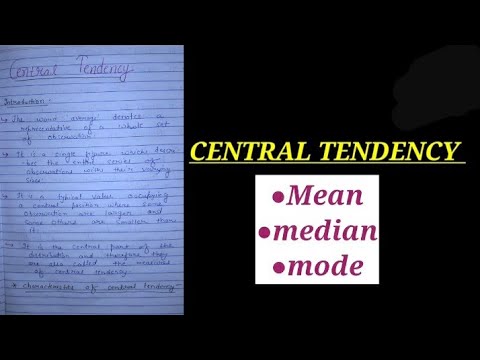 Central Tendency
Introduction :
The word 'average' denotes a
representative of a whole set
of observation.
It is a single figure which descr
ibes the entire series of
observations with their varying
sizes.
It is a typical value occupying
a central position where some
observation are larger and
some others are smaller than
it.
It is the central part of the
distribution and therefore they
are also called the measures
of central tendency.
* Characteristics of central tendency-
CENTRAL TENDENCY
•Mean
•median
•mode